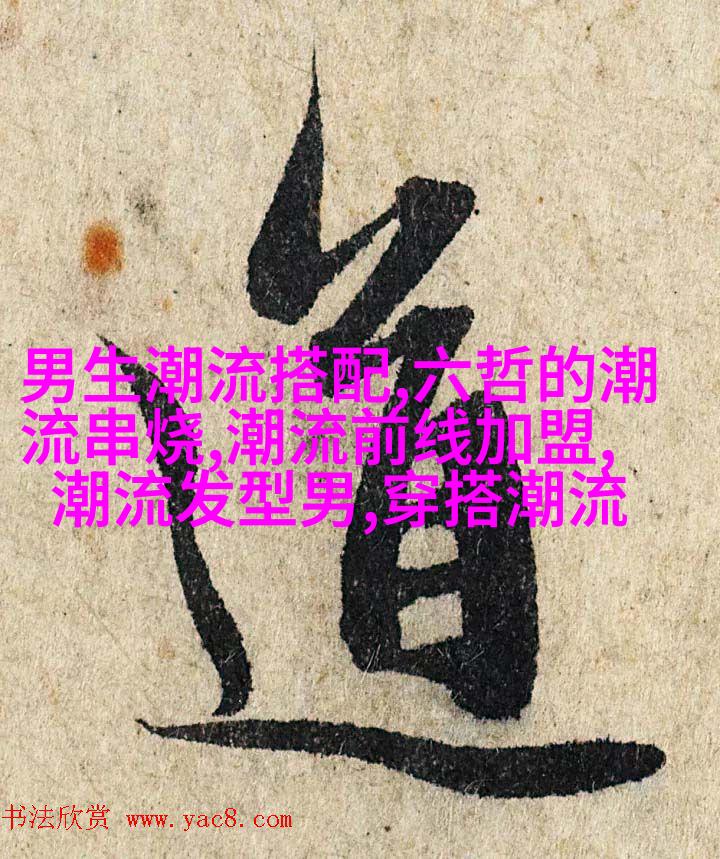 道
男生潮流搭配,六哲的潮
流串烧,潮流前线加盟,
潮流发型男,穿搭潮流
书法欣赏 www.yac8.com